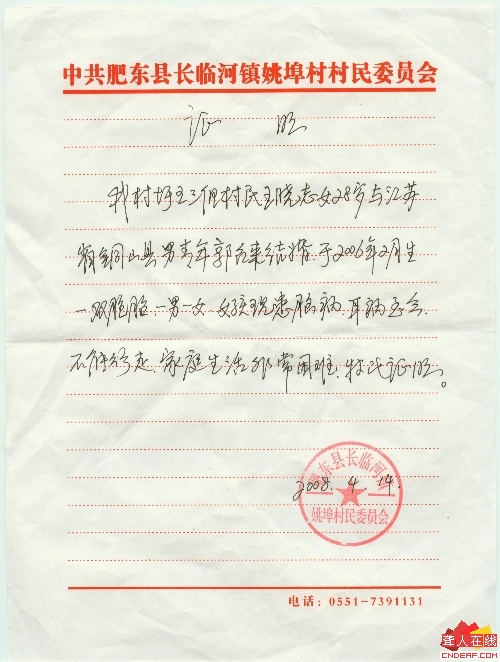 中共肥东县长临河镇姚埠村村民委员会
证 明
我村圩王三组村民王晓志女28岁与江苏
省铜山县男青年郭 来结婚于2006年2月生
一双胞胎一男一女 女孩现患脑病、耳病
不能行走、家庭生活非常困难、特此证明。
肥东县长临河镇
姚埠村民委员会
2008.4.14.
电话：0551-7391131
聋人在线
CNDEAF.COM